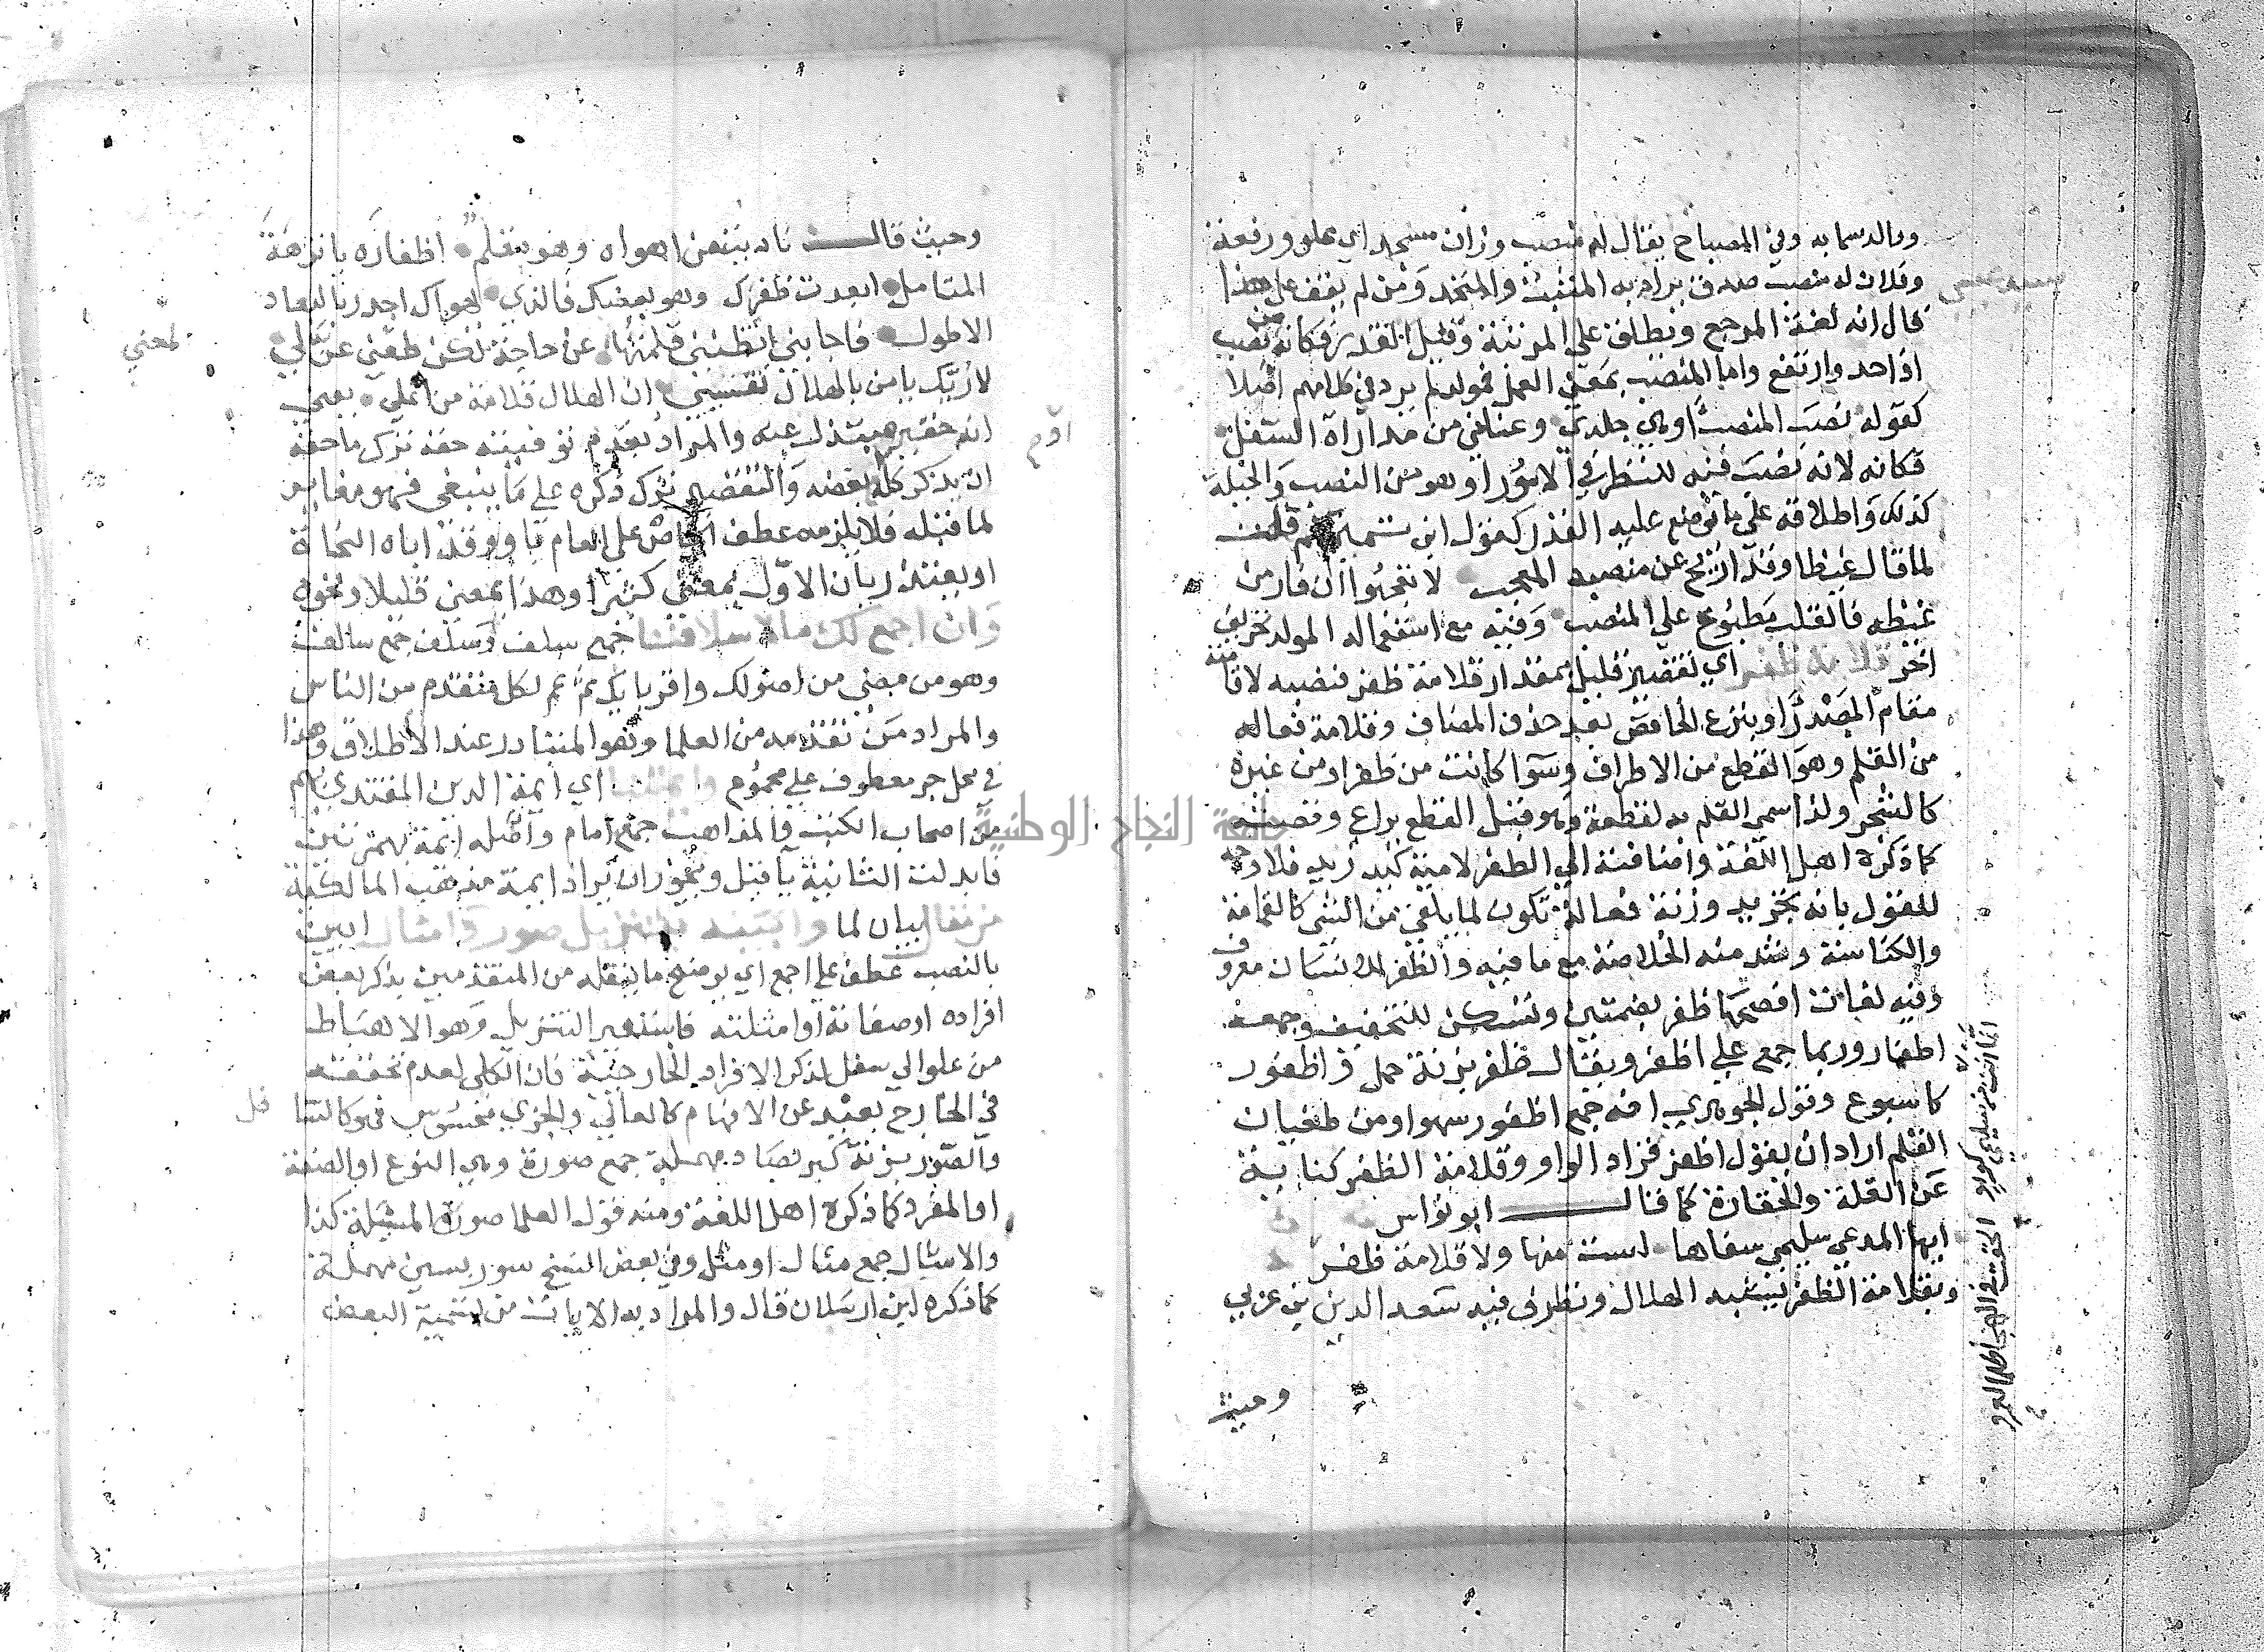 ووالد سمابه وفي المصباح يقال له منصب وزان مسجد اي علو ورفعة
وفلان له منصب صدق يراد به المنبت والمحتد ومن لم يقف على هذا
قال انه لغة المرجع ويطلق على المرتبة وقيل القدر فكانه نصب
اذا حد وارتفع واما المنصب بمعنى العمل فمولد لم يرد في كلامهم اصلا
كقوله نصب المنصب اوهى جلدي وعنائي من مداراة السفل
فكانه لانه نصب فيه للنظر في الامور او هو من النصب والحيلة
كذلك واطلاقه على ما توضع عليه القدر كقول ابن تميم
لما قال غيظا وقد ازيح عن منصبه المعجب لا تعجبوا ان فار من
غيظه فالقلب مطبوخ على المنصب وفيه مع استعماله المولد تحريف
اخر قلامة ظفر اي تقصير قليل بمقدار قلامة ظفر فنصبه لاقامته
مقام المصدر او بنزع الخافض بعد حذف المضاف وقلامة فعاله
من القلم وهو القطع من الاطراف وسوا كانت من ظفر او من غيره
كالشجر ولذا سمى القلم به لقطعه وهو قبل القطع يراع وقصبة
كما ذكره اهل اللغة واضافته الى الظفر لامية كيد زيد فلا وجه
للقول بانه تجريد وزنة فعالة تكون لما يلقى من الشي كالقمامة
والكناسة وشد منه الخلاصة مع ما فيه والظفر للانسان معروف
وفيه لغات افصحها ظفر بضمتين وتسكن للتخفيف وجمعه
اظفار وربما جمع على اظفر ويقال ظفر بزنة حمل واظفور
كاسبوع وقول الجوهري انه جمع اظفور سهو او من طغيان
القلم اراد ان يقول اظفر فزاد الواو وقلامة الظفر كناية
عن القلة والحقارة كما قال ابو نواس
ايها المدعي سليمى سفاها لست منها ولا قلامة ظفر
وبقلامة الظفر يشبه الهلال وتظرف فيه سعد الدين بن عربي
وحيث
انما انت من سليمى كواو الحقت في الهجا ظلما بعمرو
وحيث قال ناديت من اهواه وهو يقلم اظفاره يا نزهة
المتامل ابعدت ظفرك وهو بعضك فالذي يهواك اجدر بالبعاد
الاطول فاجابني اتظنني قلمتها عن حاجة لكن طغى عن لي
لاريك يا من بالهلال تقيسني ان الهلال قلامة من انملي يعني
انه حقير والمراد بعدم توفيته حقه ترك ما حقه
ان يذكر كله او بعضه والتقصير ترك ذكره على ما ينبغي فهو مغاير
لما قبله فلا يلزمه عطف الخاص على العام باو وقد اباه النحاة
او يعتذر بان الاول بمعنى كثيرا وهذا بمعنى قليلا ونحوه
وان اجمع لك ما لاسلافنا جمع سلف وسلف جمع سالف
وهو من مضى من اصولك واقربايك ثم عم لكل متقدم من الناس
والمراد من تقدمه من العلما وهو المتبادر عند الاطلاق وهذا
في محل جر معطوف على مجموع وايمتنا اي ايمة الدين المقتدى بهم
من اصحاب الكتب والمذاهب جمع امام واصله ائمة بهمزتين
فابدلت الثانية يا وقيل ويجوز ان يراد ايمة مذهب المالكية
من مقال بيان لما وابينه بتنزيل صور وامثال ابين
بالنصب عطف على اجمع اي يوضح ما ينقله من المتقدمين بذكر بعض
افراده او صفاته او امثلته فاستعير التنزيل وهو الاهباط
من علو الى سفل لذكر الافراد الخارجية فان الكلي لعدم تحققه
في الخارج بعيد عن الافهام كالعالي والجزي محسوس فهو كالسا فل
والصور بزنة كبر بصاد مهملة جمع صورة وهي النوع او الصفة
او المفرد كما ذكره اهل اللغة ومنه قول العلما صورة المسئلة كذا
والامثال جمع مثال او مثل وفي بعض النسخ سور بسين مهملة
كما ذكره ابن ارسلان قال والمراد به الايات من تسمية البعض
جامعة النجاح الوطنية